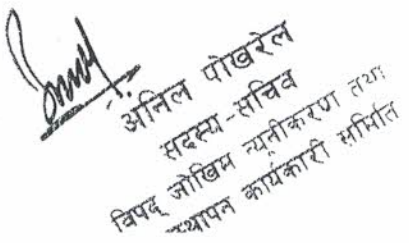 अनिल पोखरेल
सदस्य-सचिव
विपद् जोखिम न्यूनीकरण तथा
स्थापन कार्यकारी समिति